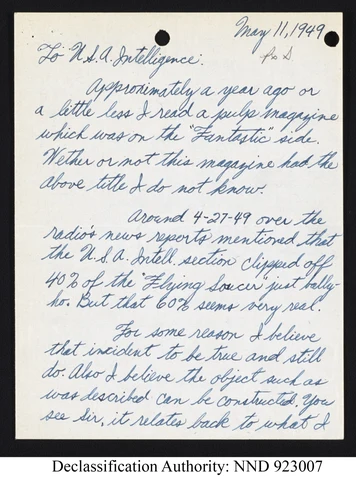 May 11, 1949
To U.S.A. Intelligence:
Approximately a year ago or
a little less I read a pulp magazine
which was on the "Fantastic" side.
Wether or not this magazine had the
above title I do not know!
Around 4-27-49 over the
radio's news reports mentioned that
the U.S.A. Intell. section clipped off
40% of the "Flying Saucer" just bally-
ho. But that 60% seems very real.
For some reason I believe
that incident to be true and still
do. Also I believe the object such as
was described can be constructed. You
see Sir, it relates back to what I
Declassification Authority: NND 923007